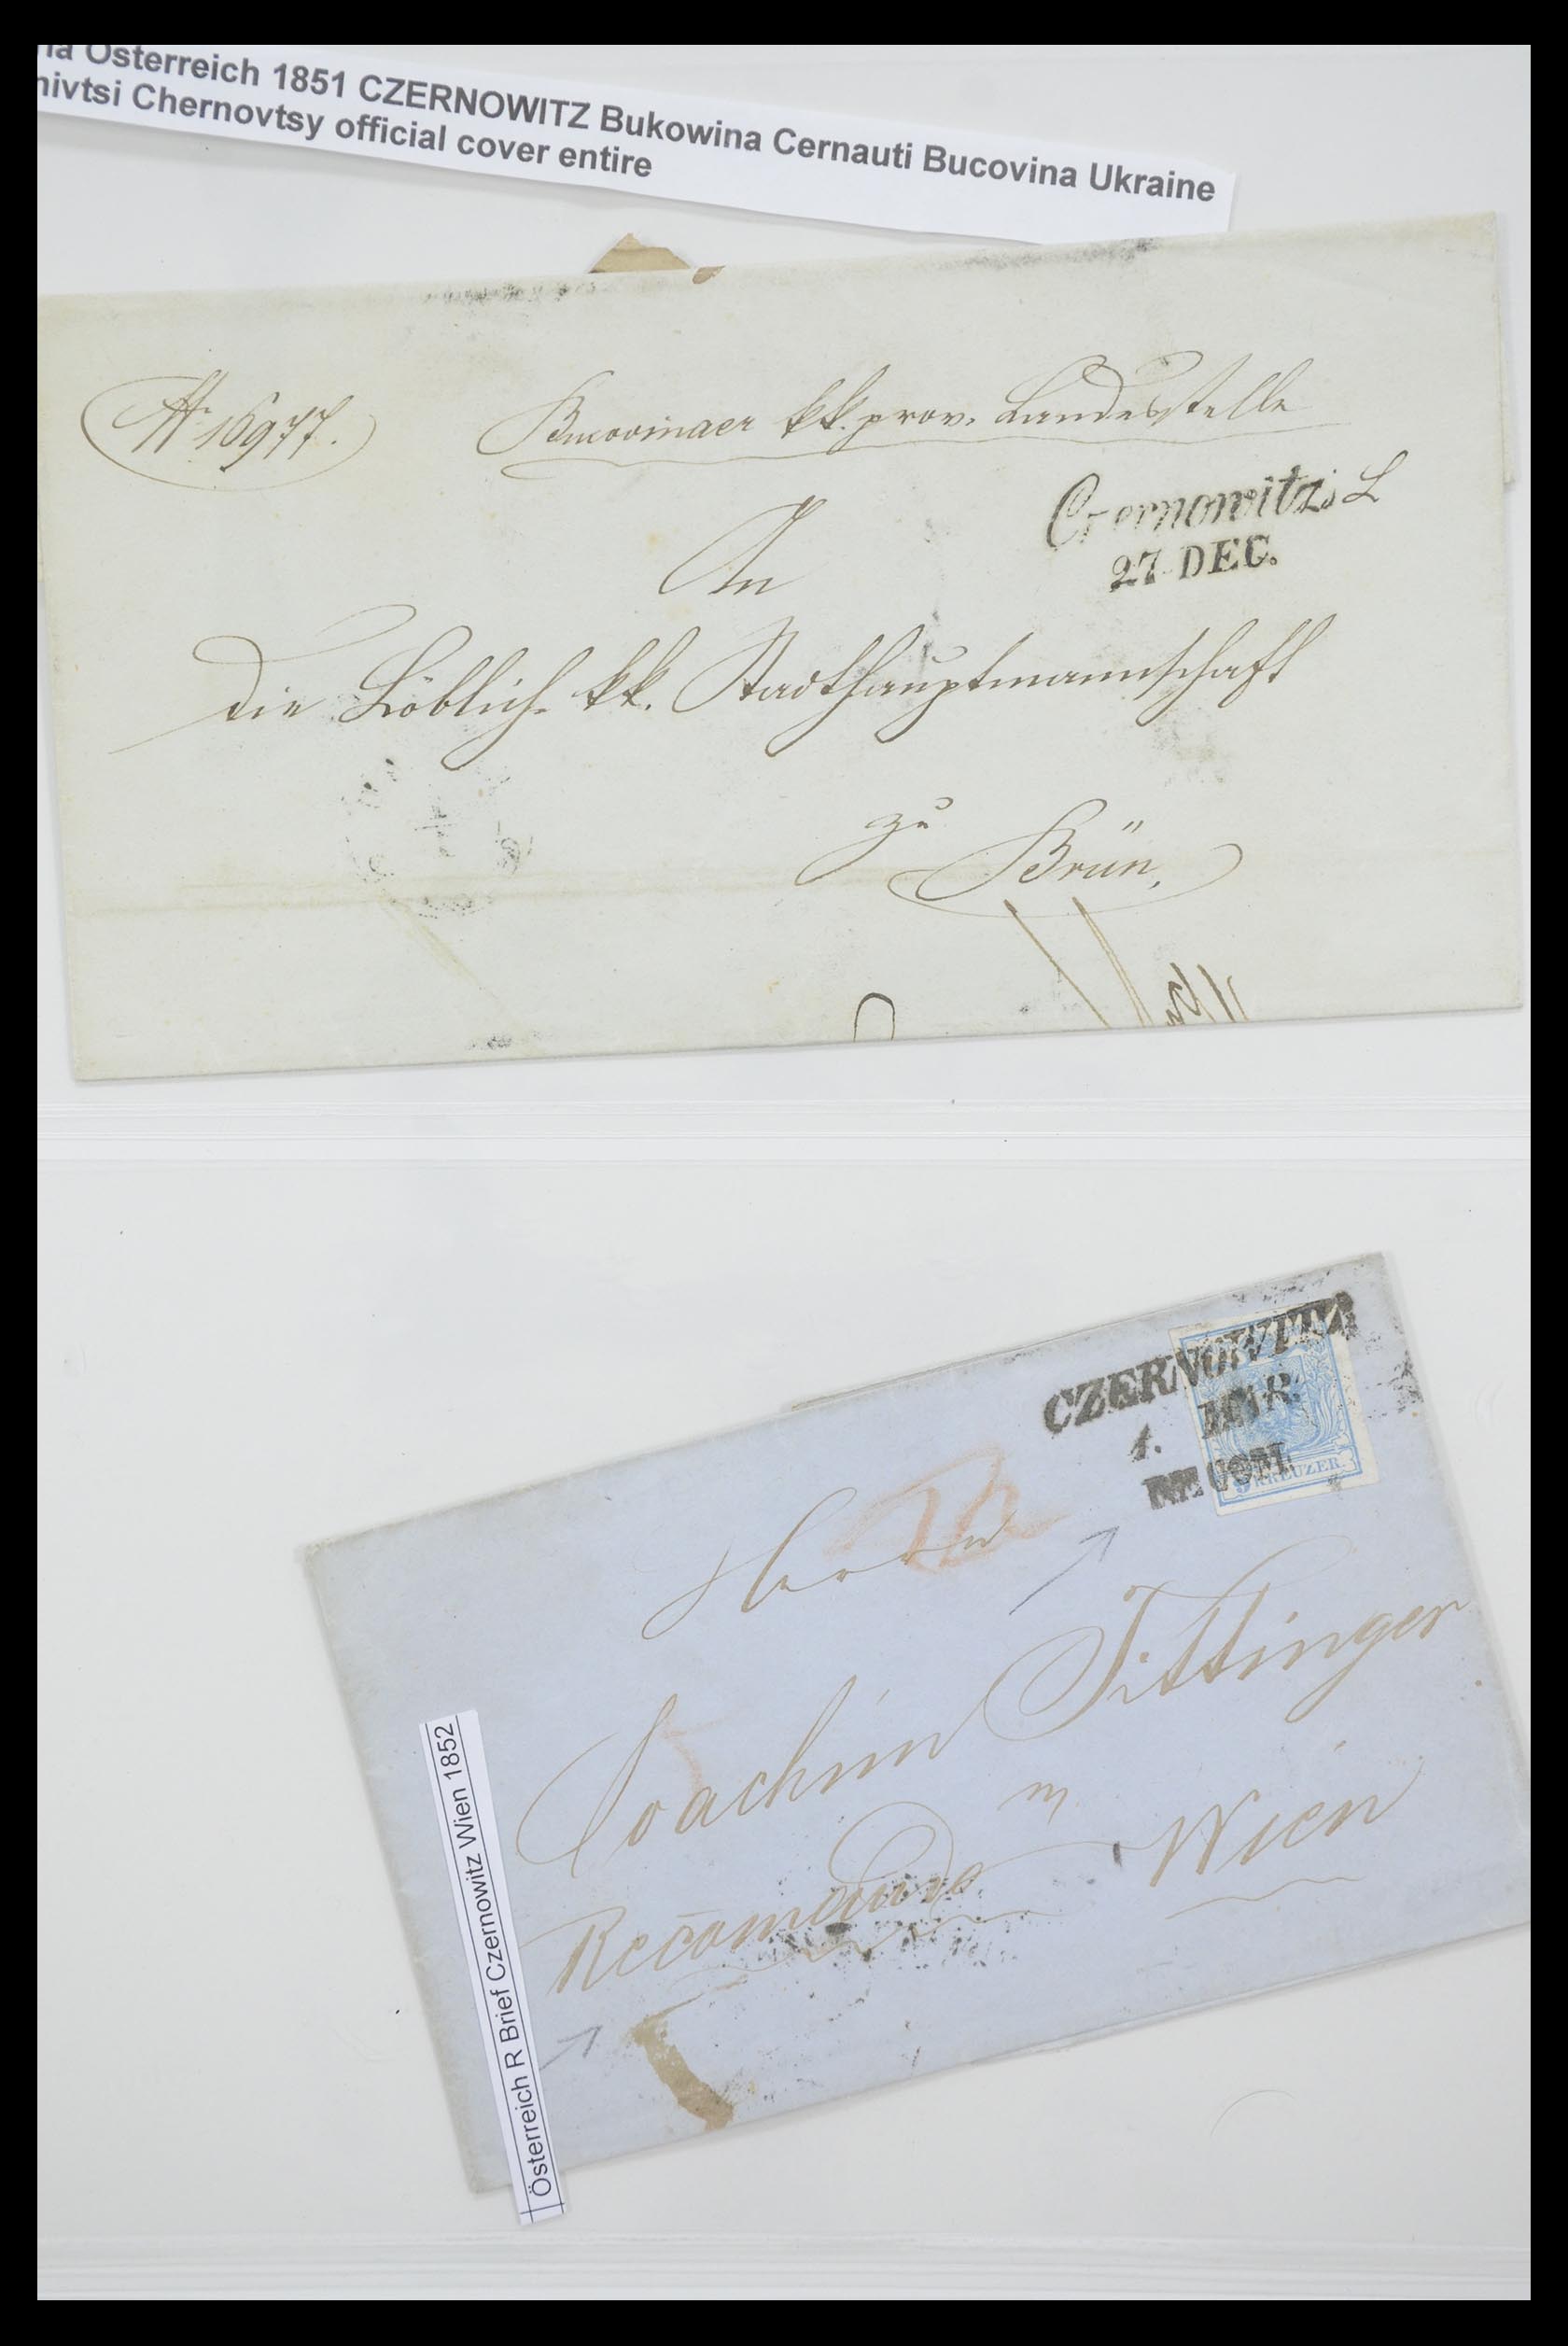 Österreich 1851 CZERNOWITZ Bukowina Cernauti Bucovina Ukraine
nivtsi Chernovtsy official cover entire
Nr 16977.
Bucovinaer kk. prov. Landesstelle
Czernowitz
27. DEC.
An
die Löblich. kk. Stadthauptmannschaft
zu
Brün.
CZERNOWITZ
1. MAR.
RECOM.
9 KREUZER.
Herrn
Joachim Tittinger
in
Wien
Recomando
Österreich R Brief Czernowitz Wien 1852